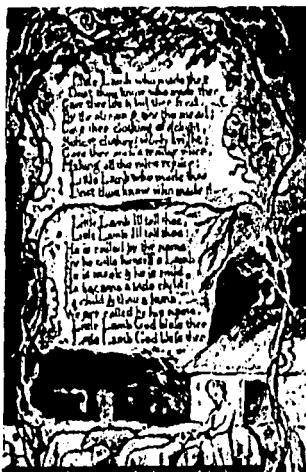 Little Lamb who made thee
Dost thou know who made thee
Gave thee life & bid thee feed.
By the stream & o'er the mead;
Gave thee clothing of delight,
Softest clothing wooly bright;
Gave thee such a tender voice,
Making all the vales rejoice:
Little Lamb who made thee
Dost thou know who made
Little Lamb I'll tell thee,
Little Lamb I'll tell thee;
He is called by thy name,
he calls himself a Lamb:
He is meek & he is mild,
He became a little child:
a child & thou a lamb,
We are called by his name.
Little Lamb God bless thee
Little Lamb God bless thee